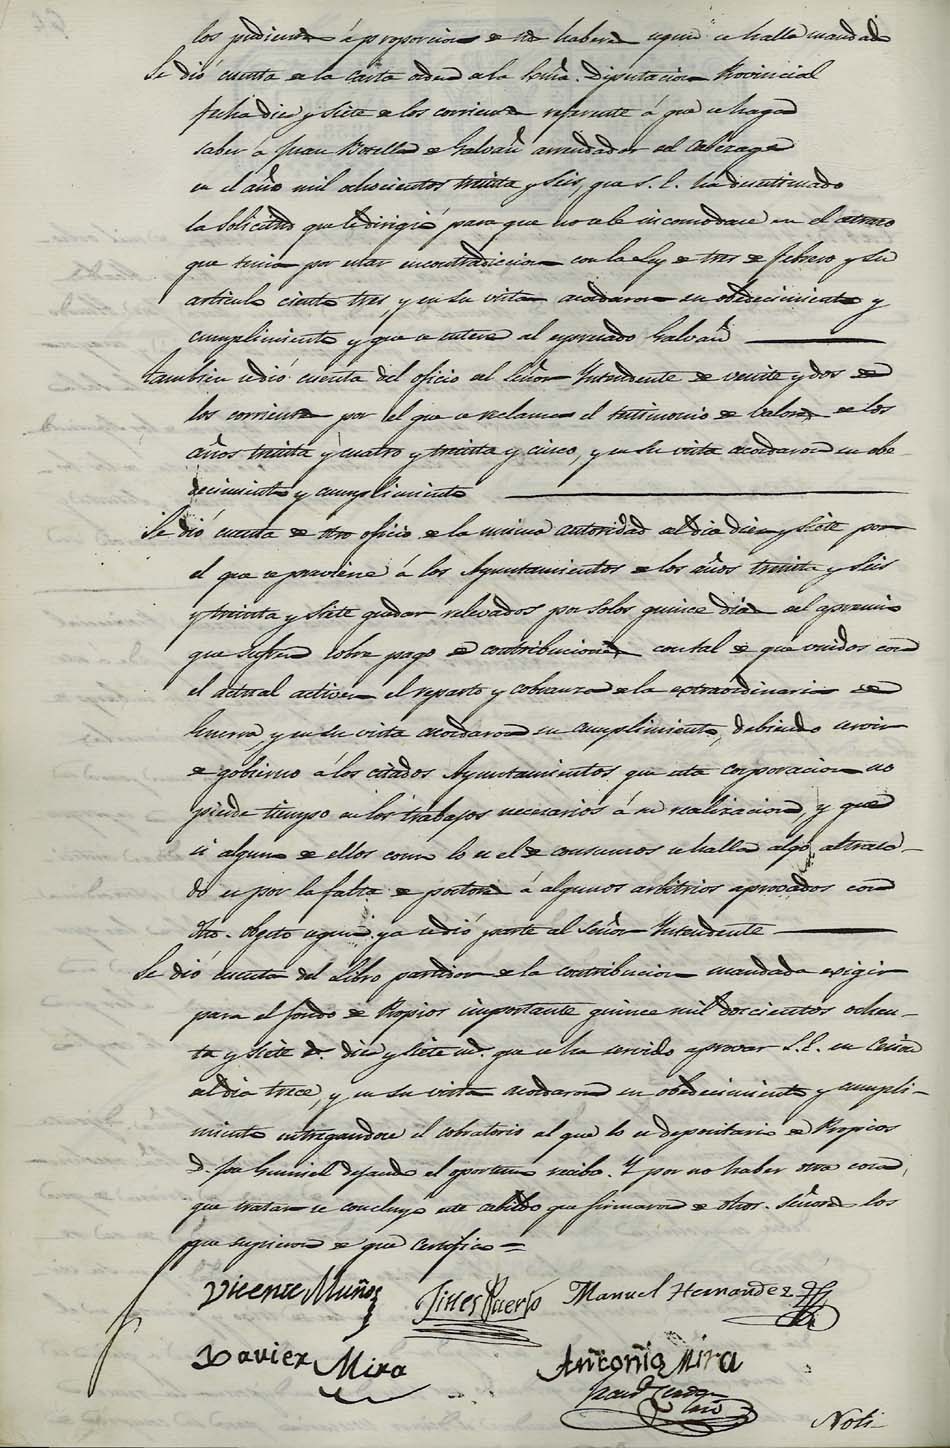 los pudientes á proporcion de sus haberes segun se halla mandado
Se dió cuenta de la carta orden de la Exma. Diputacion Provincial
fecha diez y siete de los corrientes referente á que se haga
saber á Juan Botella de Galvañ arrendador del Cabezage
en el año mil ochocientos treinta y seis, que S. E. ha desestimado
la solicitud que le dirigió para que no se le incomodase en el atraso
que tenia por estar en contradiccion con la ley de tres de febrero y su
articulo ciento tres, y en su vista acordaron su obedecimiento y
cumplimiento y que se entere al espresado Galvañ
Tambien se dió cuenta del oficio del Señor Yntendente de veinte y dos de
los corrientes por el que se reclama el testimonio de valores de los
años treinta y cuatro y treinta y cinco, y en su vista acordaron su obe-
decimiento y cumplimiento
Se dió cuenta de otro oficio de la misma autoridad del dia diez y siete por
el que se previene á los Ayuntamientos de los años treinta y seis
y treinta y siete quedar relevados por solos quince dias del apremio
que sufren sobre pago de contribuciones con tal de que unidos con
el actual activen el reparto y cobranza de la extraordinaria de
Guerra, y en su vista acordaron su cumplimiento, debiendo servir
de gobierno á los citados Ayuntamientos que esta corporacion no
pierde tiempo en los trabajos necesarios á su realizacion y que
si alguno de ellos como lo es el de consumos se halla algo atrasa-
do es por la falta de postores á algunos arbitrios aprovados con
dho. objeto segun ya se dió parte al Señor Yntendente
Se dió cuenta del Libro partidor de la contribucion mandada exigir
para el fondo de Propios importante quince mil doscientos ochen-
ta y siete rs. diez y siete ms. que se ha servido aprovar S. E. en
del dia trece, y en su vista acordaron su obedecimiento y cumpli-
miento entregandose el cobratorio al que lo es depositario de Propios
D. José dejando el oportuno recibo. Y por no haber otra cosa
que tratar se concluyó este cabildo que firmaron de dhos. Señores los
que supieron de que certifico =
Vicente Muñoz Gines Puerto Manuel Hernandez
Xavier Mira Antonio Mira
Noti-